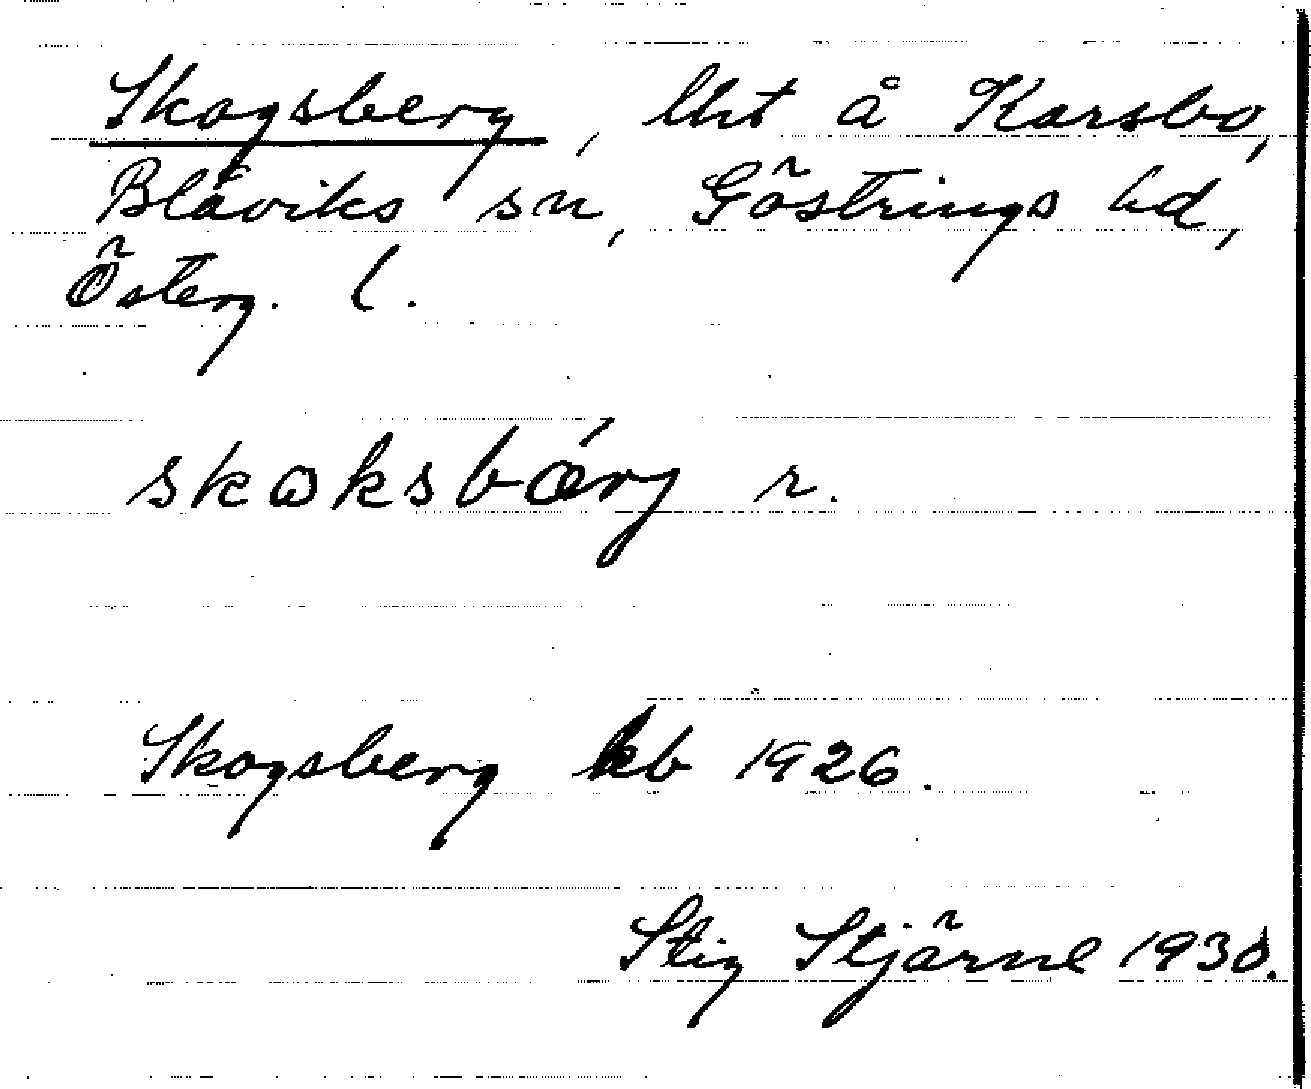 Skogsberg, lht å Karsbo,
Blåviks sn, Göstrings hd,
Österg. l.
skɷksbǽrj r.
Skogsberg kb 1926.
Stig Stjärne 1930.